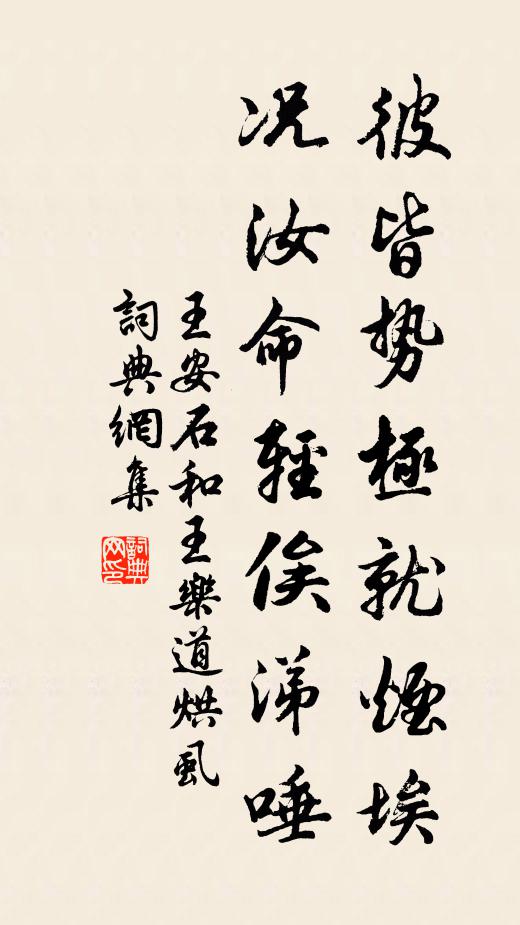 彼皆势極就煙埃
况汝命輕俟涕唾
王安石和王樂道烘虱
詞典網集
詞典網印